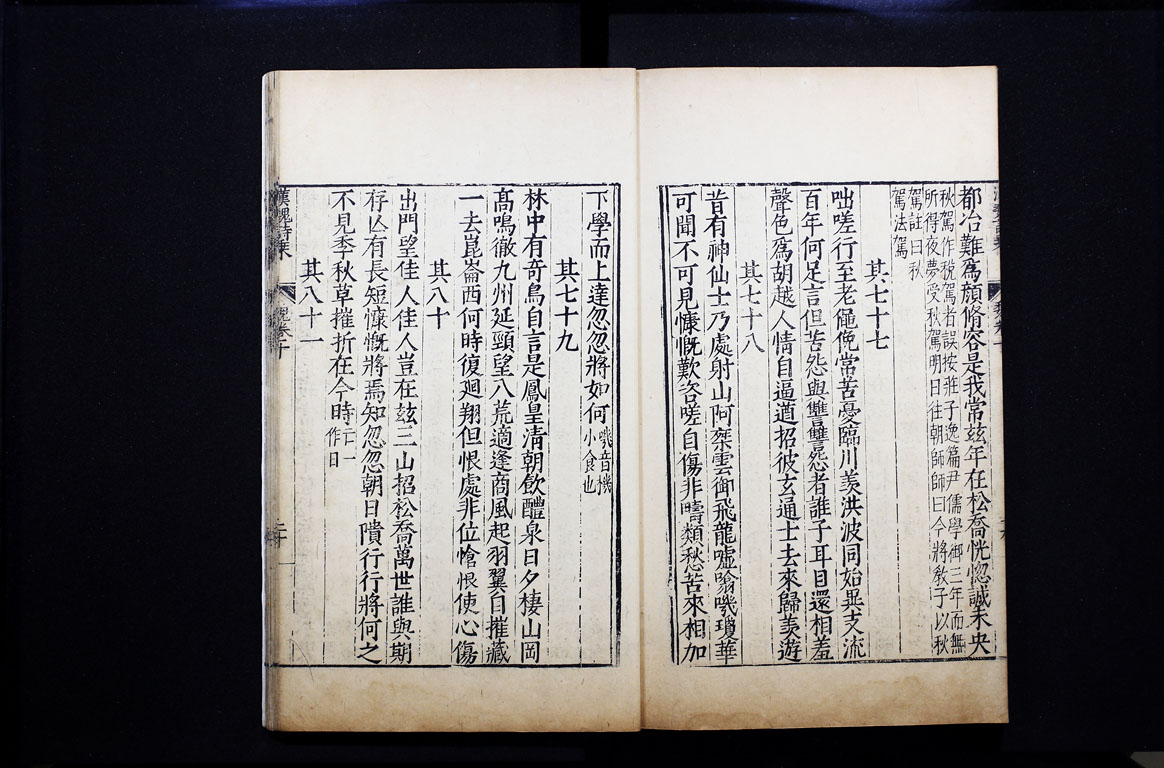 都冶難爲顔脩容是我常兹年在松喬恍惚誠未央
秋駕作稅駕者誤按莊子逸篇尹儒學御三年而無
所得夜夢受秋駕明日往朝師師曰今將敎子以秋
駕註曰秋
駕法駕
其七十七
咄嗟行至老僶俛常苦憂臨川羨洪波同始異支流
百年何足言但苦怨與讐讐怨者誰子耳目還相羞
聲色爲胡越人情自逼遒招彼玄通士去來歸羨遊
其七十八
昔有神仙士乃處射山阿桒雲御飛龍噓噏嘰瓊華
可聞不可見慷慨歎咨嗟自傷非疇類愁苦來相加
下學而上達忽忽將如何
嘰音機
小食也
其七十九
林中有奇鳥自言是鳳皇清朝飲醴泉日夕棲山岡
髙鳴徹九州延頸望八荒適逢商風起羽翼自摧藏
一去崑崙西何時復廻翔但恨處非位愴恨使心傷
其八十
出門望佳人佳人豈在兹三山招松喬萬世誰與期
存亾有長短慷慨將焉知忽忽朝日隤行行將何之
不見季秋草摧折在今時
一云
作日
其八十一
漢魏詩乗